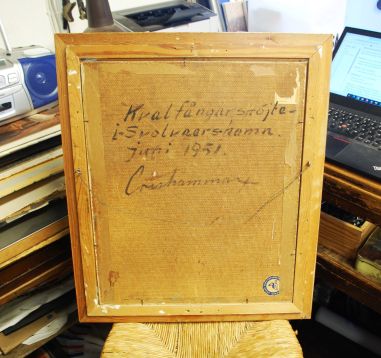 Kvalfångarskojte-
i-Svolvaersdamn.
juni 1951
Crishammar